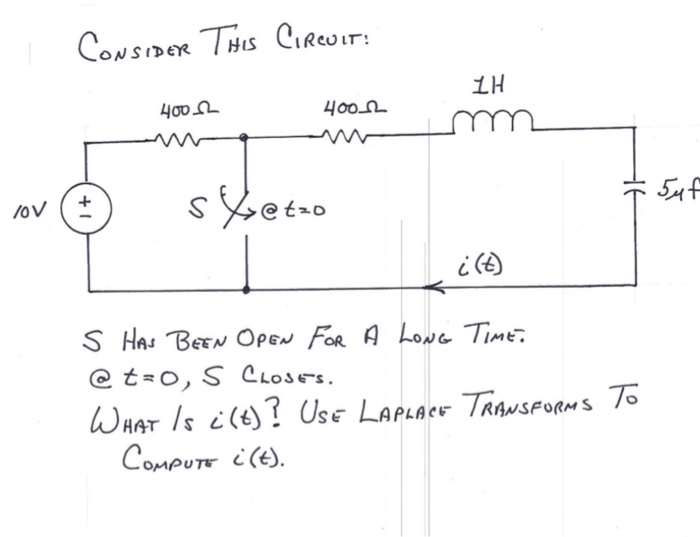 CONSIDER THIS CIRCUIT:
1H
400Ω 400Ω
10V + − S @ t=0 5μf
i(t)
S HAS BEEN OPEN FOR A LONG TIME.
@ t=0, S CLOSES.
WHAT IS i(t)? USE LAPLACE TRANSFORMS TO
COMPUTE i(t).